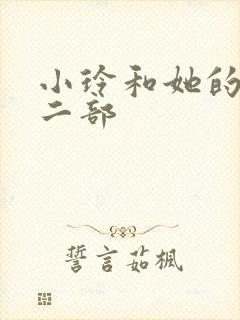 小玲和她的
二部
誓言茹楓